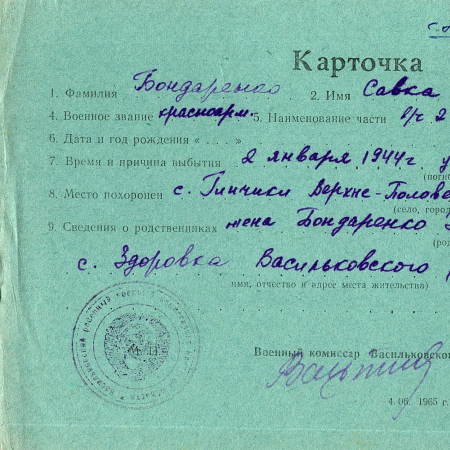 Карточка
1. Фамилия Бондаренко 2. Имя Савка
4. Военное звание красноарм. 5. Наименование части в/ч 2
6. Дата и год рождения « . . . »
7. Время и причина выбытия 2 января 1944 г у
(погиб
8. Место похоронен с. Пинчики Верхне-Полове
(село, город
9. Сведения о родственниках жена Бондаренко
(род
с. Здоровка Васильковского
имя, отчество и адрес места жительства)
Военный комиссар Васильковско
4.06. 1965 г.